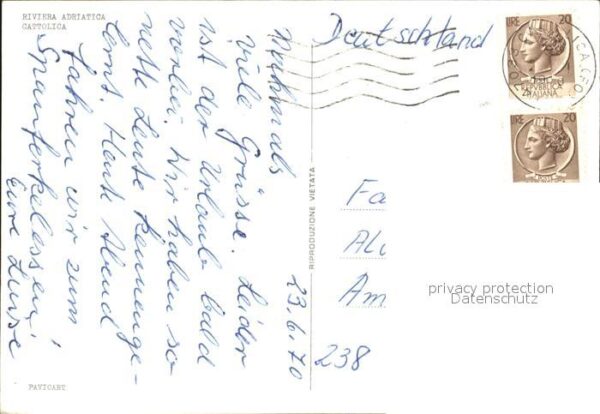 RIVIERA ADRIATICA
CATTOLICA
Deutschland
LIRE 20
REPVBBLICA
ITALIANA
LIRE 20
23.6.70
Nochmals
viele Grüsse. Leider
ist der Urlaub bald
vorbei. Wir haben so
nette Leute kennenge-
lernt. Heute Abend
fahren wir zum
Spanferkelessen!
Eure Luise
RIPRODUZIONE VIETATA
Fa
Al
Am
238
privacy protection
Datenschutz
PAVICART